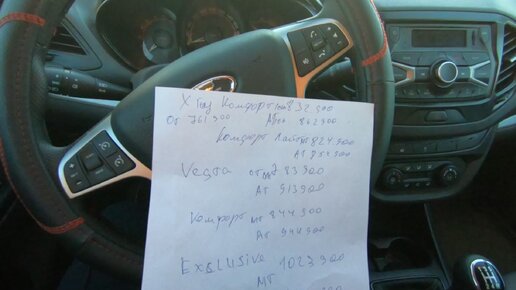 X Ray Комфорт 832 900
От 761 900
842 900
Комфорт Лайт 824 900
АТ 854 900
Vesta от 783 900
АТ 913900
Комфорт мт 844 900
АТ 944 900
Exslusive 1023 900
МТ